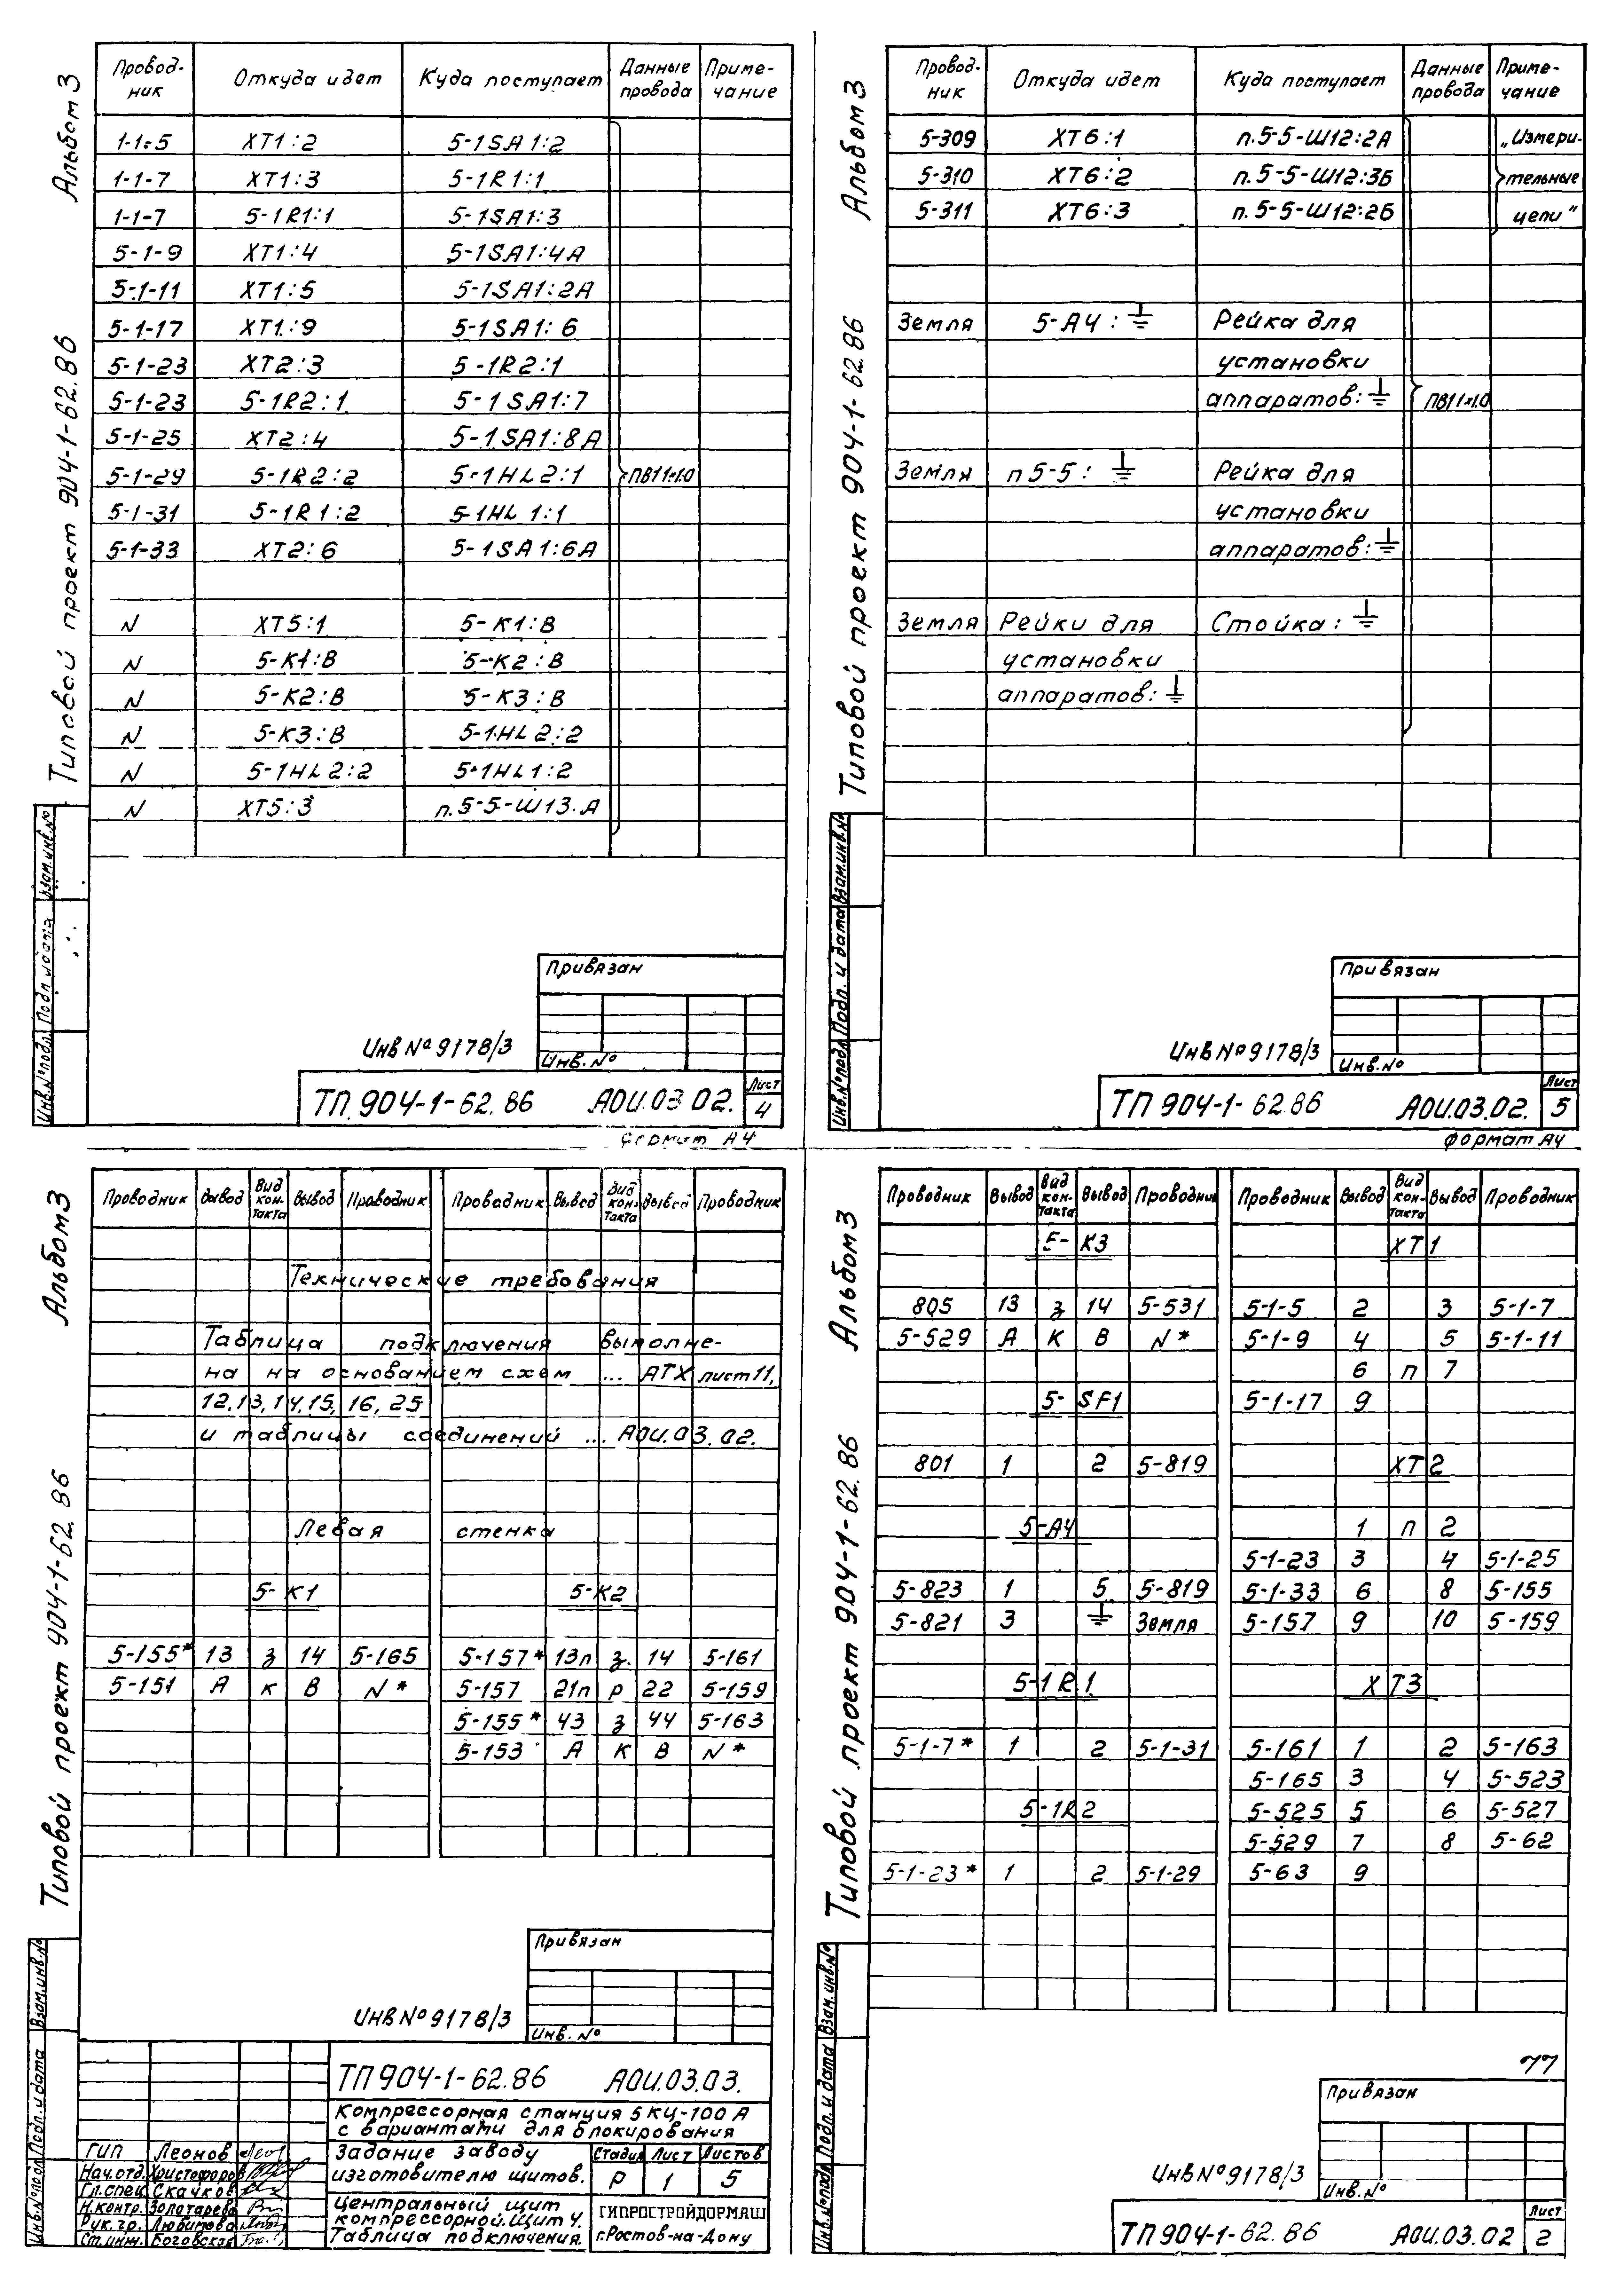 Альбом 3
Типовой проект 904-1-62.86
Провод-ник Откуда идет Куда поступает Данные провода Приме-чание
1-1-5 ХТ1:2 5-1SA1:2
1-1-7 ХТ1:3 5-1R1:1
1-1-7 5-1R1:1 5-1SA1:3
5-1-9 ХТ1:4 5-1SA1:4А
5-1-11 ХТ1:5 5-1SA1:2А
5-1-17 ХТ1:9 5-1SA1:6
5-1-23 ХТ2:3 5-1R2:1
5-1-23 5-1R2:1 5-1SA1:7
5-1-25 ХТ2:4 5-1SA1:8А
5-1-29 5-1R2:2 5-1HL2:1 ПВ11×1.0
5-1-31 5-1R1:2 5-1HL1:1
5-1-33 ХТ2:6 5-1SA1:6А
N ХТ5:1 5-К1:В
N 5-К1:В 5-К2:В
N 5-К2:В 5-К3:В
N 5-К3:В 5-1HL2:2
N 5-1HL2:2 5-1HL1:2
N ХТ5:3 п.5-5-Ш13.А
Взам.инв.№
Подп. и дата
Инв.№ подл.
Привязан
Инв.№
Инв № 9178/3
ТП 904-1-62.86 АОИ.03 02. Лист 4
Формат А4
Альбом 3
Типовой проект 904-1-62.86
Провод-ник Откуда идет Куда поступает Данные провода Приме-чание
5-309 ХТ6:1 п.5-5-Ш12:2А „Измери-
5-310 ХТ6:2 п.5-5-Ш12:3Б тельные
5-311 ХТ6:3 п.5-5-Ш12:2Б цепи"
Земля 5-А4:⏚ Рейка для
установки
аппаратов:⏚ ПВ11×1.0
Земля п 5-5:⏚ Рейка для
установки
аппаратов:⏚
Земля Рейки для Стойка:⏚
установки
аппаратов:⏚
Взам.инв.№
Подп. и дата
Инв.№ подл.
Привязан
Инв.№
Инв № 9178/3
ТП 904-1-62.86 АОИ.03.02. Лист 5
Формат А4
Альбом 3
Типовой проект 904-1-62.86
Проводник Вывод Вид кон-такта Вывод Проводник Проводник Вывод Вид кон-такта Вывод Проводник
Технические требования
Таблица подключения выполне-
на на основанием схем ... АТХ лист 11,
12,13,14,15, 16, 25
и таблицы соединений ... АОИ.03.02.
Левая стенка
5-К1 5-К2
5-155* 13 з 14 5-165 5-157* 13п з 14 5-161
5-151 А к В N* 5-157 21п р 22 5-159
5-155* 43 з 44 5-163
5-153 А К В N*
Привязан
Инв.№
Инв № 9178/3
Взам.инв.№
Подп. и дата
Инв.№ подл.
ТП 904-1-62.86 АОИ.03.03.
Компрессорная станция 5КЦ-100А
с вариантами для блокирования
ГИП Леонов
Нач.отд. Христофоров
Гл.спец. Скачков
Н.контр. Золотарева
Рук.гр. Любимова
Ст.инж. Боговская
Задание заводу
изготовителю щитов.
Стадия Лист Листов
Р 1 5
Центральный щит
компрессорной. Щит 4.
Таблица подключения.
ГИПРОСТРОЙДОРМАШ
г.Ростов-на-Дону
Альбом 3
Типовой проект 904-1-62.86
Проводник Вывод Вид кон-такта Вывод Проводник Проводник Вывод Вид кон-такта Вывод Проводник
5-К3 ХТ1
805 13 з 14 5-531 5-1-5 2 3 5-1-7
5-529 А К В N* 5-1-9 4 5 5-1-11
6 п 7
5-SF1 5-1-17 9
801 1 2 5-819 ХТ2
5-А4 1 п 2
5-1-23 3 4 5-1-25
5-823 1 5 5-819 5-1-33 6 8 5-155
5-821 3 ⏚ Земля 5-157 9 10 5-159
5-1R1 ХТ3
5-1-7* 1 2 5-1-31 5-161 1 2 5-163
5-165 3 4 5-523
5-1R2 5-525 5 6 5-527
5-529 7 8 5-62
5-1-23* 1 2 5-1-29 5-63 9
Взам.инв.№
Подп. и дата
Инв.№ подл.
77
Привязан
Инв.№
Инв № 9178/3
ТП 904-1-62.86 АОИ.03.02 Лист 2